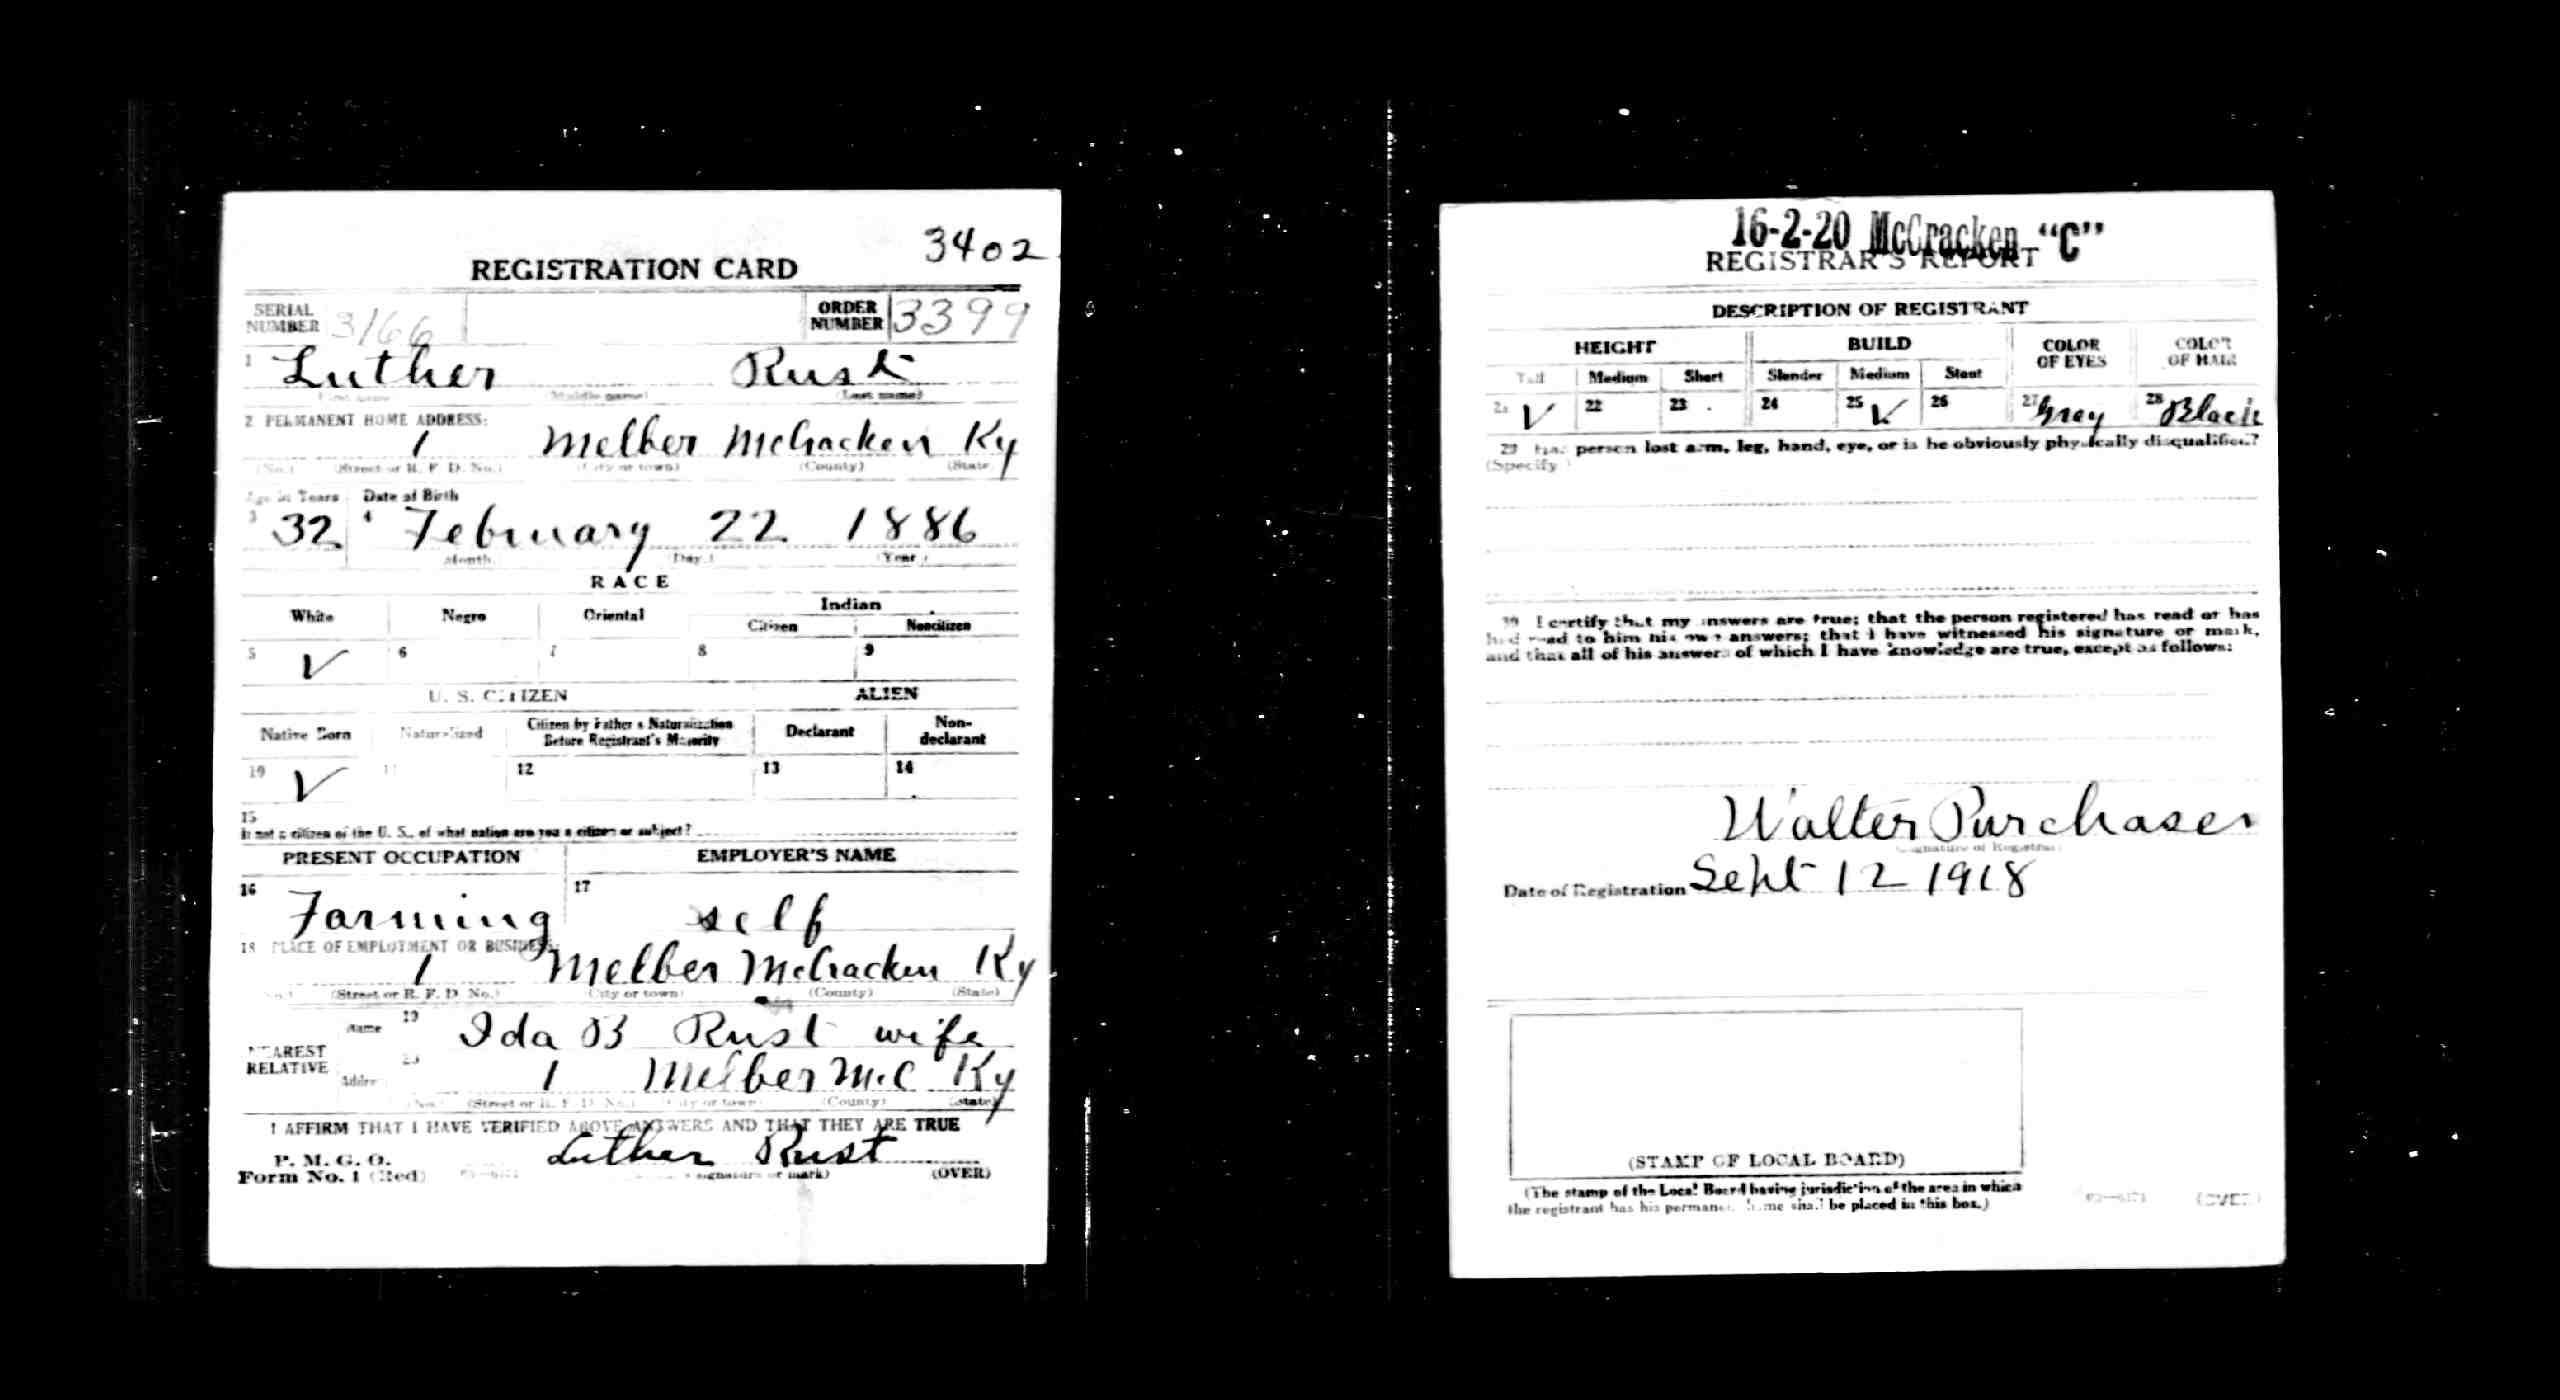 3402
REGISTRATION CARD
SERIAL NUMBER 3166 ORDER NUMBER 3399
1 Luther Rust
(First name) (Middle name) (Last name)
2 PERMANENT HOME ADDRESS:
1 Melber McCracken Ky
(No.) (Street or R. F. D. No.) (City or town) (County) (State)
Age in Years Date of Birth
3 32 4 February 22 1886
(Month) (Day.) (Year)
RACE
White Negro Oriental Indian
Citizen Noncitizen
5 V 6 7 8 9
U. S. CITIZEN ALIEN
Native Born Naturalized Citizen by Father's Naturalization Before Registrant's Majority Declarant Non-declarant
10 V 11 12 13 14
15
If not a citizen of the U. S., of what nation are you a citizen or subject?
PRESENT OCCUPATION EMPLOYER'S NAME
16 Farming 17 self
18 PLACE OF EMPLOYMENT OR BUSINESS:
1 Melber McCracken Ky
(No.) (Street or R. F. D. No.) (City or town) (County) (State)
NEAREST RELATIVE Name 19 Ida B Rust wife
Address 20 1 Melber McC Ky
(No.) (Street or R. F. D. No.) (City or town) (County) (State)
I AFFIRM THAT I HAVE VERIFIED ABOVE ANSWERS AND THAT THEY ARE TRUE
P. M. G. O.
Form No. 1 (Red) Luther Rust
(Signature or mark) (OVER)
16-2-20 McCracken "C"
REGISTRAR'S REPORT
DESCRIPTION OF REGISTRANT
HEIGHT BUILD COLOR OF EYES COLOR OF HAIR
Tall Medium Short Slender Medium Stout
21 V 22 23 24 25 V 26 27 Gray 28 Black
29 Has person lost arm, leg, hand, eye, or is he obviously physically disqualified?
(Specify.)
30 I certify that my answers are true; that the person registered has read or has
had read to him his own answers; that I have witnessed his signature or mark,
and that all of his answers of which I have knowledge are true, except as follows:
Walter Purchaser
(Signature of Registrar)
Date of Registration Sept 12 1918
(STAMP OF LOCAL BOARD)
(The stamp of the Local Board having jurisdiction of the area in which
the registrant has his permanent home shall be placed in this box.)
(OVER)